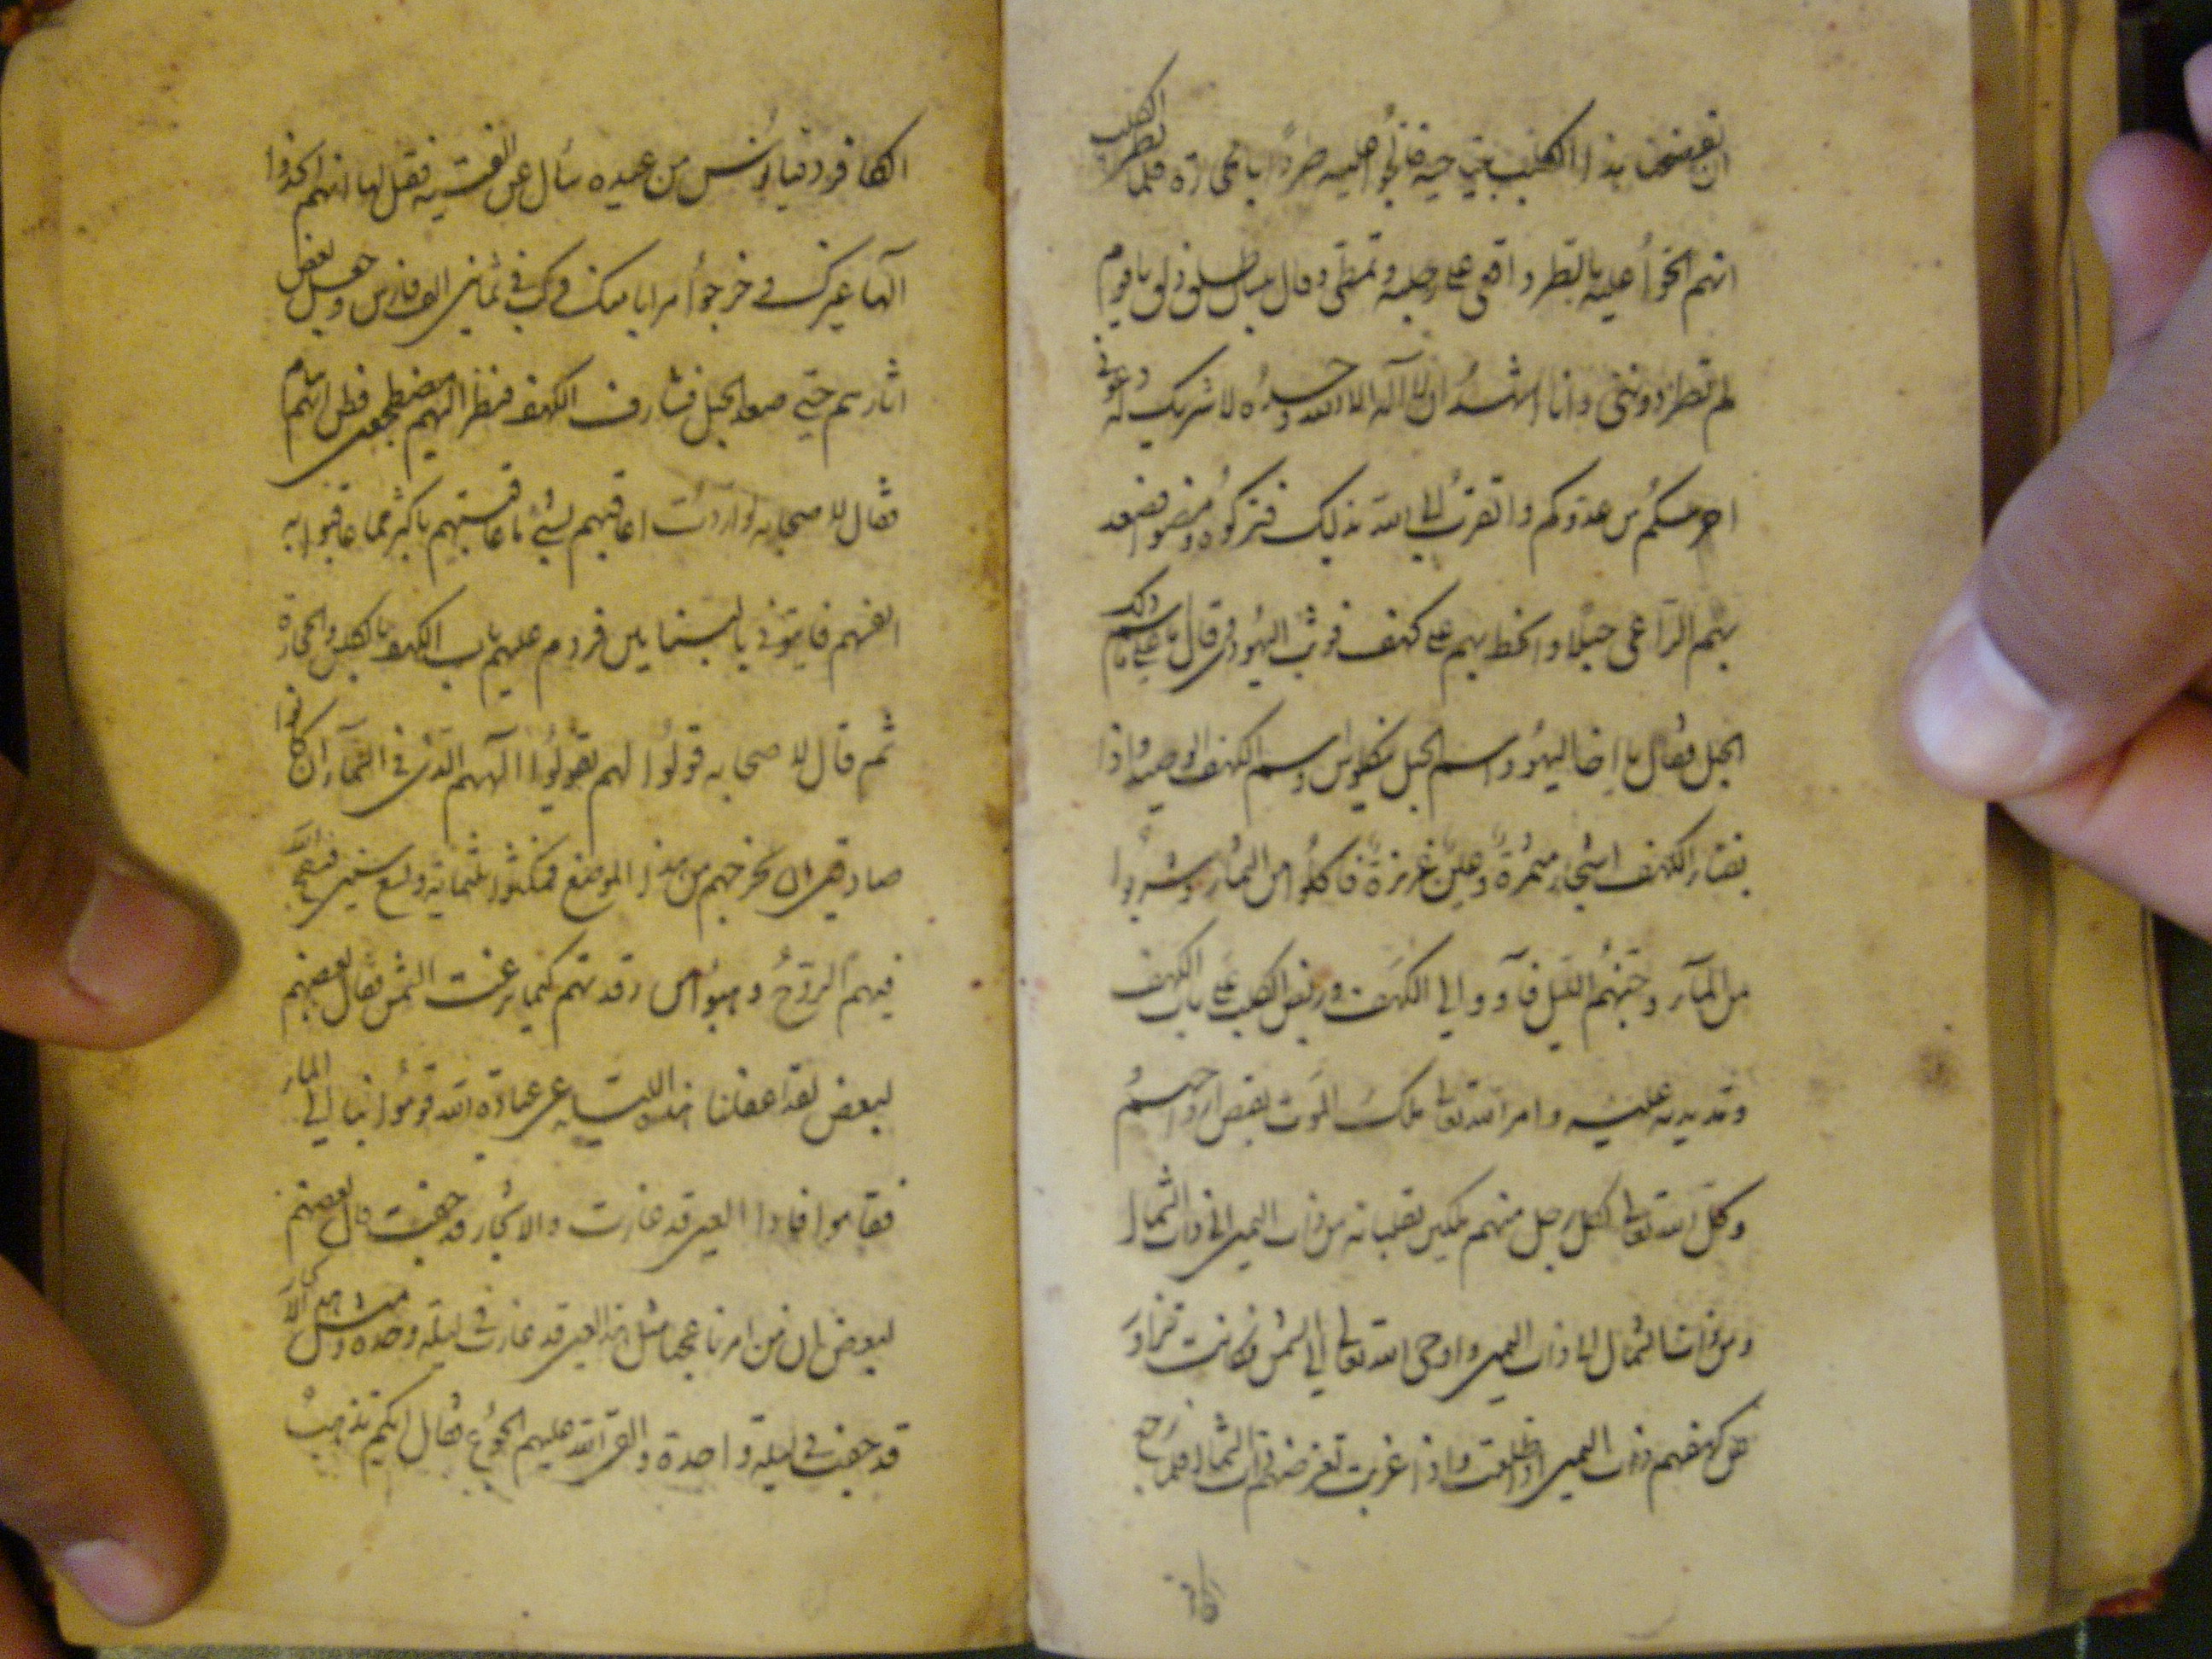 ان يفضحنا هذا الكلب بنبيحه فالحوا عليه طردا بالحجارة فلما نظر الكلب
انهم الحوا عليه بالطرد اقعى على رجليه وتمطى وقال بلسان طلق ذلق يا قوم
لم تطردوننى وانا اشهد ان لا اله الا الله وحده لا شريك له دعونى
احرسكم من عدوكم واتقرب الى الله بذلك فتركوه ومضوا فصعد
بهم الراعى جبلا وانحط بهم على كهف فوثب اليهودى وقال يا على ما اسم ذلك
الجبل فقال يا اخا اليهود اسم الجبل ينجلوس واسم الكهف الوصيد واذا
بفناء الكهف اشجار مثمرة وعين غزيرة فاكلوا من الثمار وشربوا
من الماء وجنهم الليل فآووا الى الكهف وربض الكلب على باب الكهف
ومد يديه عليه وامر الله تعالى ملك الموت بقبض ارواحهم
وكل الله تعالى لكل رجل منهم ملكين يقلبانه من ذات اليمين الى ذات الشمال
ومن ذات الشمال الى ذات اليمين واوحى الله تعالى الى الشمس فكانت تزاور
عن كهفهم ذات اليمين اذا طلعت واذا غربت تقرضهم ذات الشمال فلما رجع
الكافر
الكافر دقيانوس من عيده سأل عن الفتية فقيل له انهم اتخذوا
الها غيرك وخرجوا هرابا منك فركب فى ثمانين الف فارس وجعل يقفى
اثارهم حتى صعد الجبل فشارف الكهف فنظر اليهم مضطجعين فظن انهم نيام
فقال لاصحابه لو اردت اعاقبهم بشئ ما عاقبتهم باكثر مما عاقبوا به
انفسهم فايتونى بالبنائين فردم عليهم باب الكهف بالكلس والحجارة
ثم قال لاصحابه قولوا لهم يقولوا الههم الذى فى السماء ان كانوا
صادقين ان يخرجهم من هذا الموضع فمكثوا ثلثمائة وتسع سنين
فيهم الروح وهبوا من رقدتهم كما بزغت الشمس فقال بعضهم
لبعض لقد اغفلنا هذه الليلة عن عبادة الله قوموا بنا الى الماء
فقاموا فاذا العين قد غارت والاشجار قد جفت فقال بعضهم
لبعض ان من امرنا عجبا مثل هذا العين قد غارت فى ليلة واحدة ومثل هذه
قد جفت فى ليلة واحدة والقى الله عليهم الجوع فقال ايكم يذهب